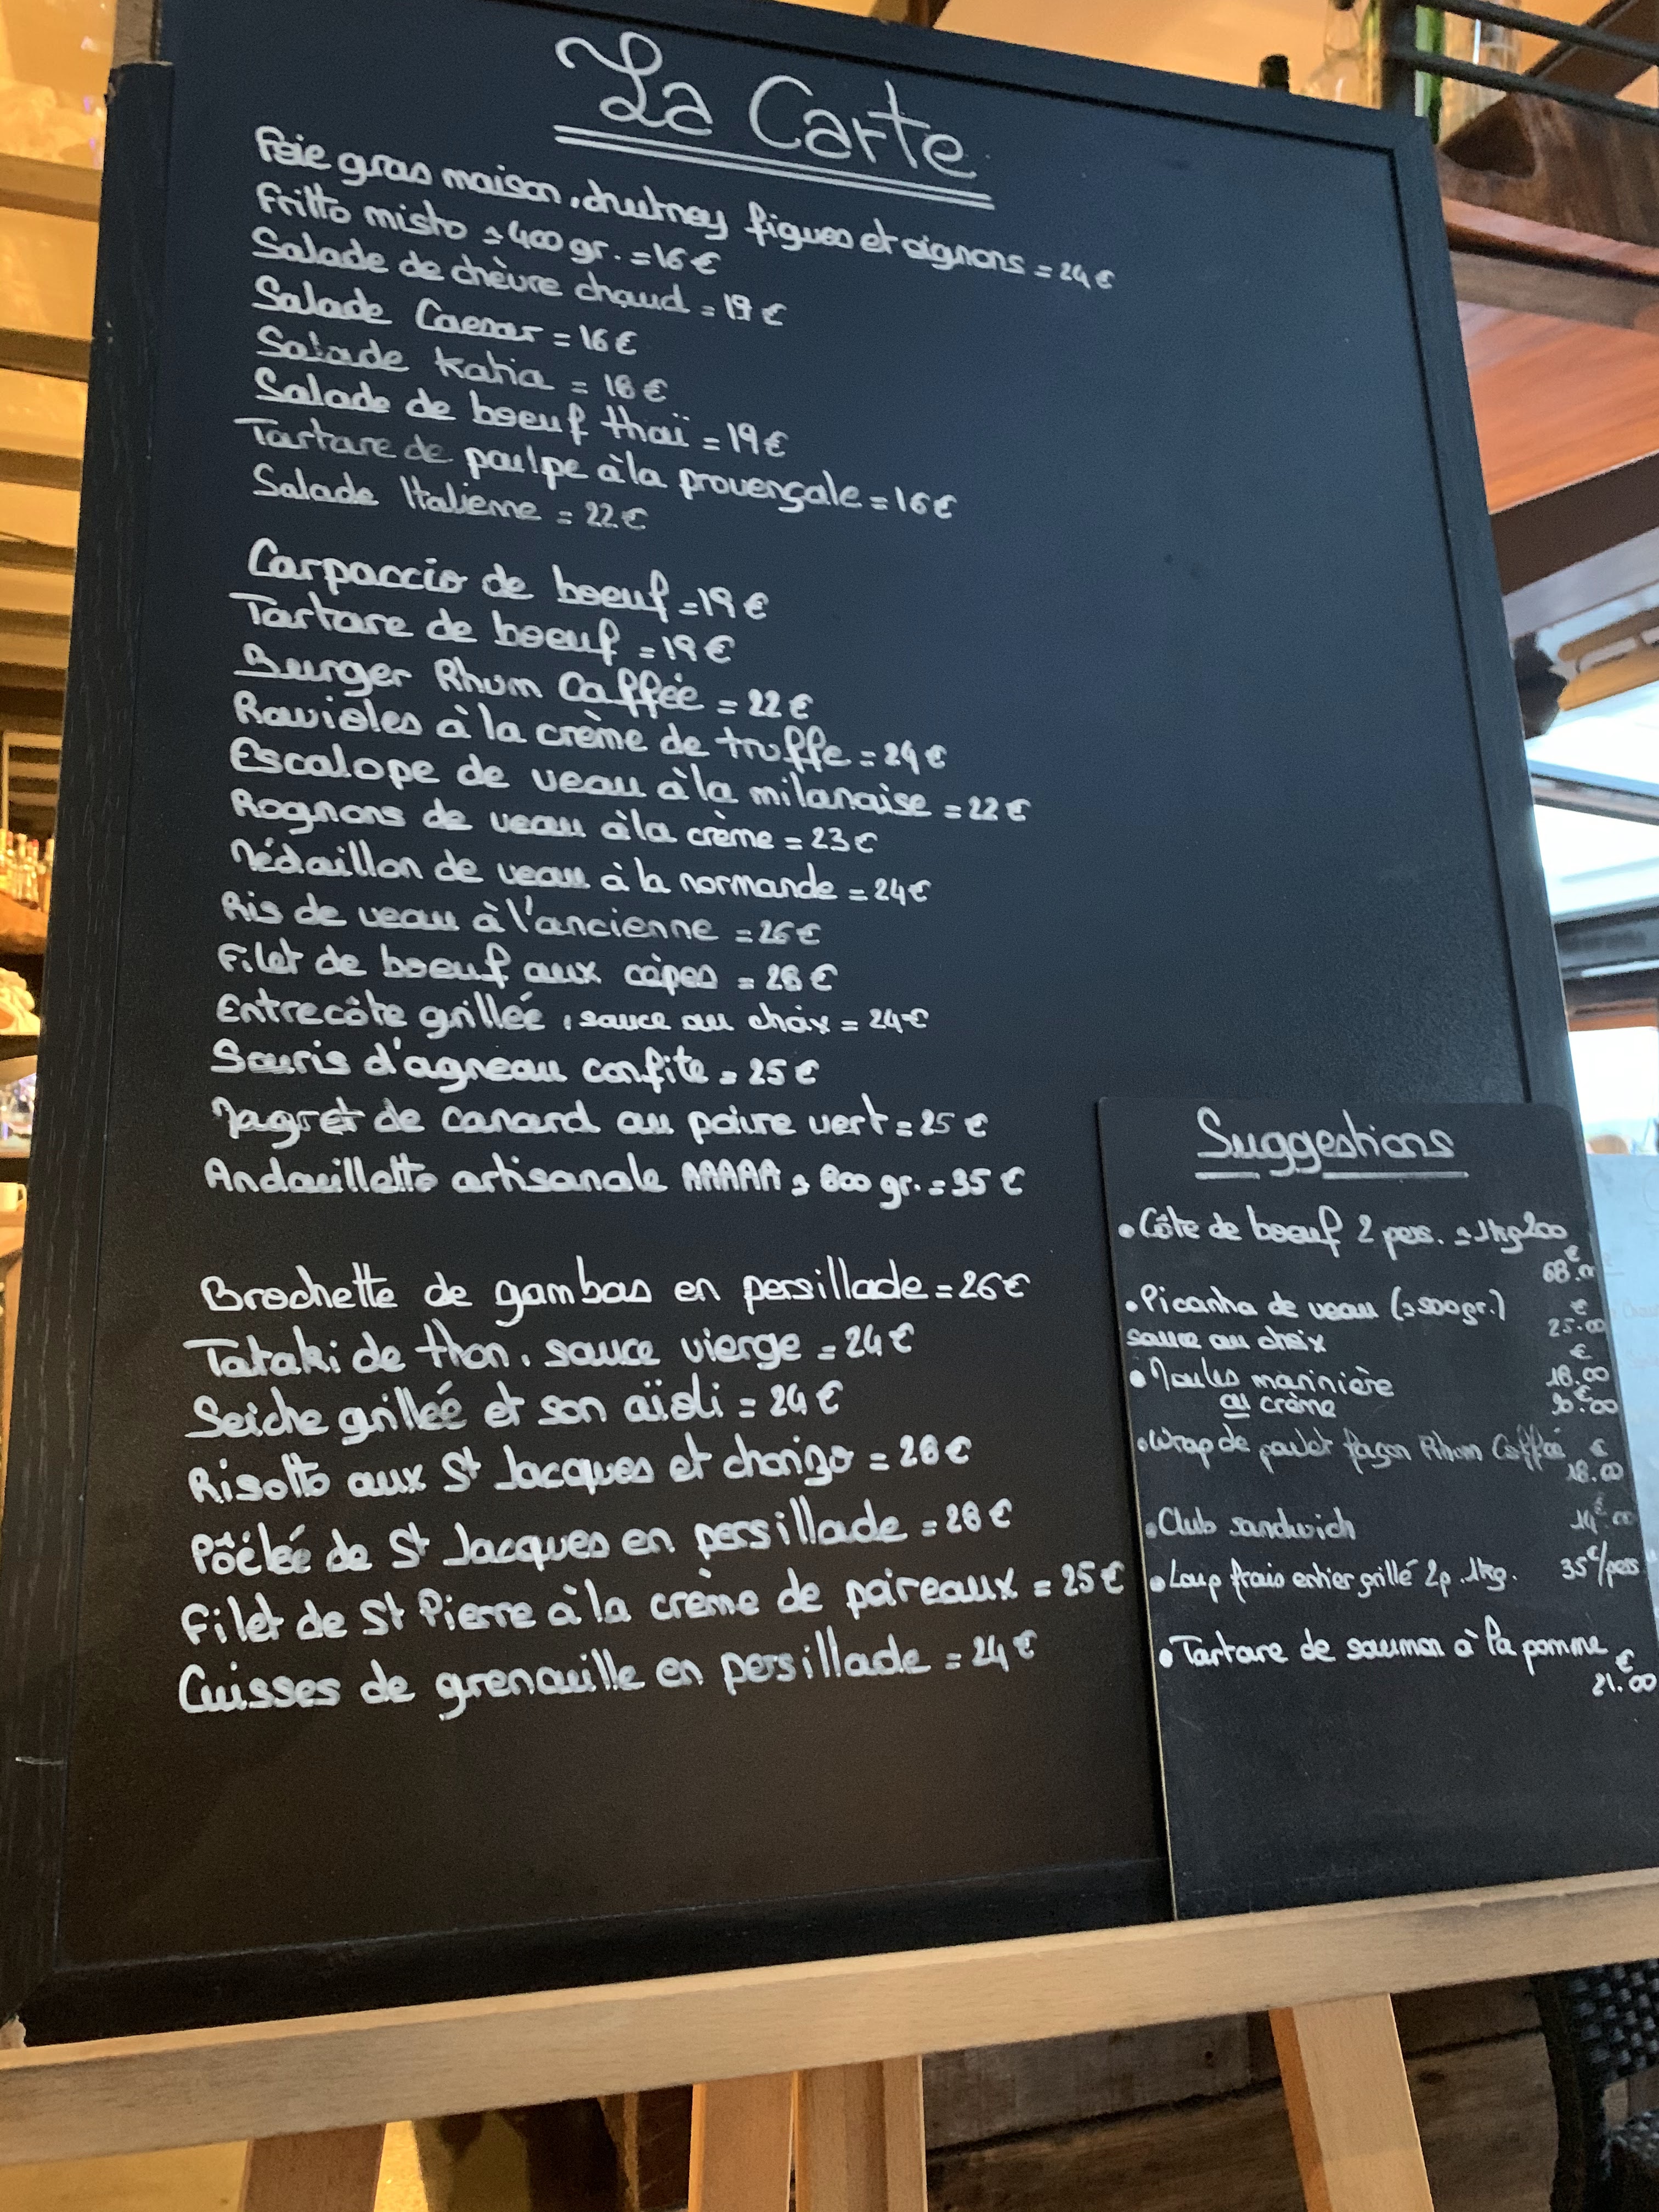 La Carte
Foie gras maison, chutney figues et oignons = 24 €
Fritto misto ± 400 gr. = 16 €
Salade de chèvre chaud = 19 €
Salade Caesar = 16 €
Salade Katia = 18 €
Salade de boeuf thaï = 19 €
Tartare de poulpe à la provençale = 16 €
Salade Italienne = 22 €
Carpaccio de boeuf = 19 €
Tartare de boeuf = 19 €
Burger Rhum Caffée = 22 €
Ravioles à la crème de truffe = 24 €
Escalope de veau à la milanaise = 22 €
Rognons de veau à la crème = 23 €
Médaillon de veau à la normande = 24 €
Ris de veau à l'ancienne = 26 €
Filet de boeuf aux cèpes = 28 €
Entrecôte grillée, sauce au choix = 24 €
Souris d'agneau confite = 25 €
Magret de canard au poivre vert = 25 €
Andouillette artisanale AAAAA ± 800 gr. = 35 €
Brochette de gambas en persillade = 26 €
Tataki de thon, sauce vierge = 24 €
Seiche grillée et son aïoli = 24 €
Risotto aux St Jacques et chorizo = 28 €
Pôêlée de St Jacques en persillade = 28 €
Filet de St Pierre à la crème de poireaux = 25 €
Cuisses de grenouille en persillade = 24 €
Suggestions
• Côte de boeuf 2 pers. ± 1kg200
€
68.00
• Picanha de veau (± 500 gr.)
€
25.00
sauce au choix
€
• Moules marinière 18.00
ou crème €
.00
• Wrap de poulet façon Rhum Caffée €
18.00
• Club sandwich 14€.00
• Loup frais entier grillé 2p. 1kg. 35€/pers
• Tartare de saumon à la pomme €
21.00